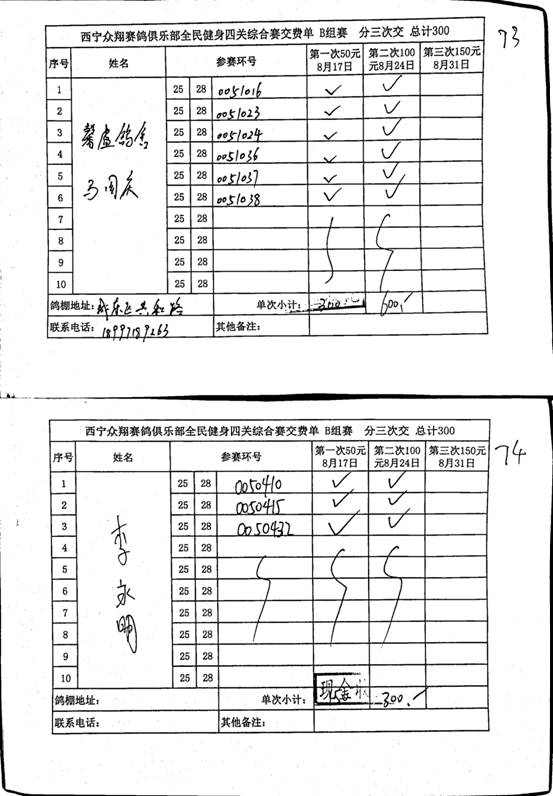 西宁众翔赛鸽俱乐部全民健身四关综合赛交费单 B组赛 分三次交 总计300
73
序号 姓名 参赛环号 第一次50元 8月17日 第二次100元8月24日 第三次150元 8月31日
1 25 28 0051016 ✓ ✓
2 25 28 0051023 ✓ ✓
3 25 28 0051024 ✓ ✓
馨盧鸽舍
4 25 28 0051036 ✓ ✓
5 25 28 0051037 ✓ ✓
马国庆
6 25 28 0051038 ✓ ✓
7 25 28
8 25 28
9 25 28
10 25 28
鸽棚地址: 城东区共和路 单次小计: 300元 600.-
联系电话: 18997189263 其他备注:
西宁众翔赛鸽俱乐部全民健身四关综合赛交费单 B组赛 分三次交 总计300
74
序号 姓名 参赛环号 第一次50元 8月17日 第二次100元8月24日 第三次150元 8月31日
1 25 28 0050410 ✓ ✓
2 25 28 0050415 ✓ ✓
3 25 28 0050432 ✓ ✓
4 25 28
李永明
5 25 28
6 25 28
7 25 28
8 25 28
9 25 28
10 25 28
鸽棚地址: 单次小计: 现金 300.-
联系电话: 其他备注: